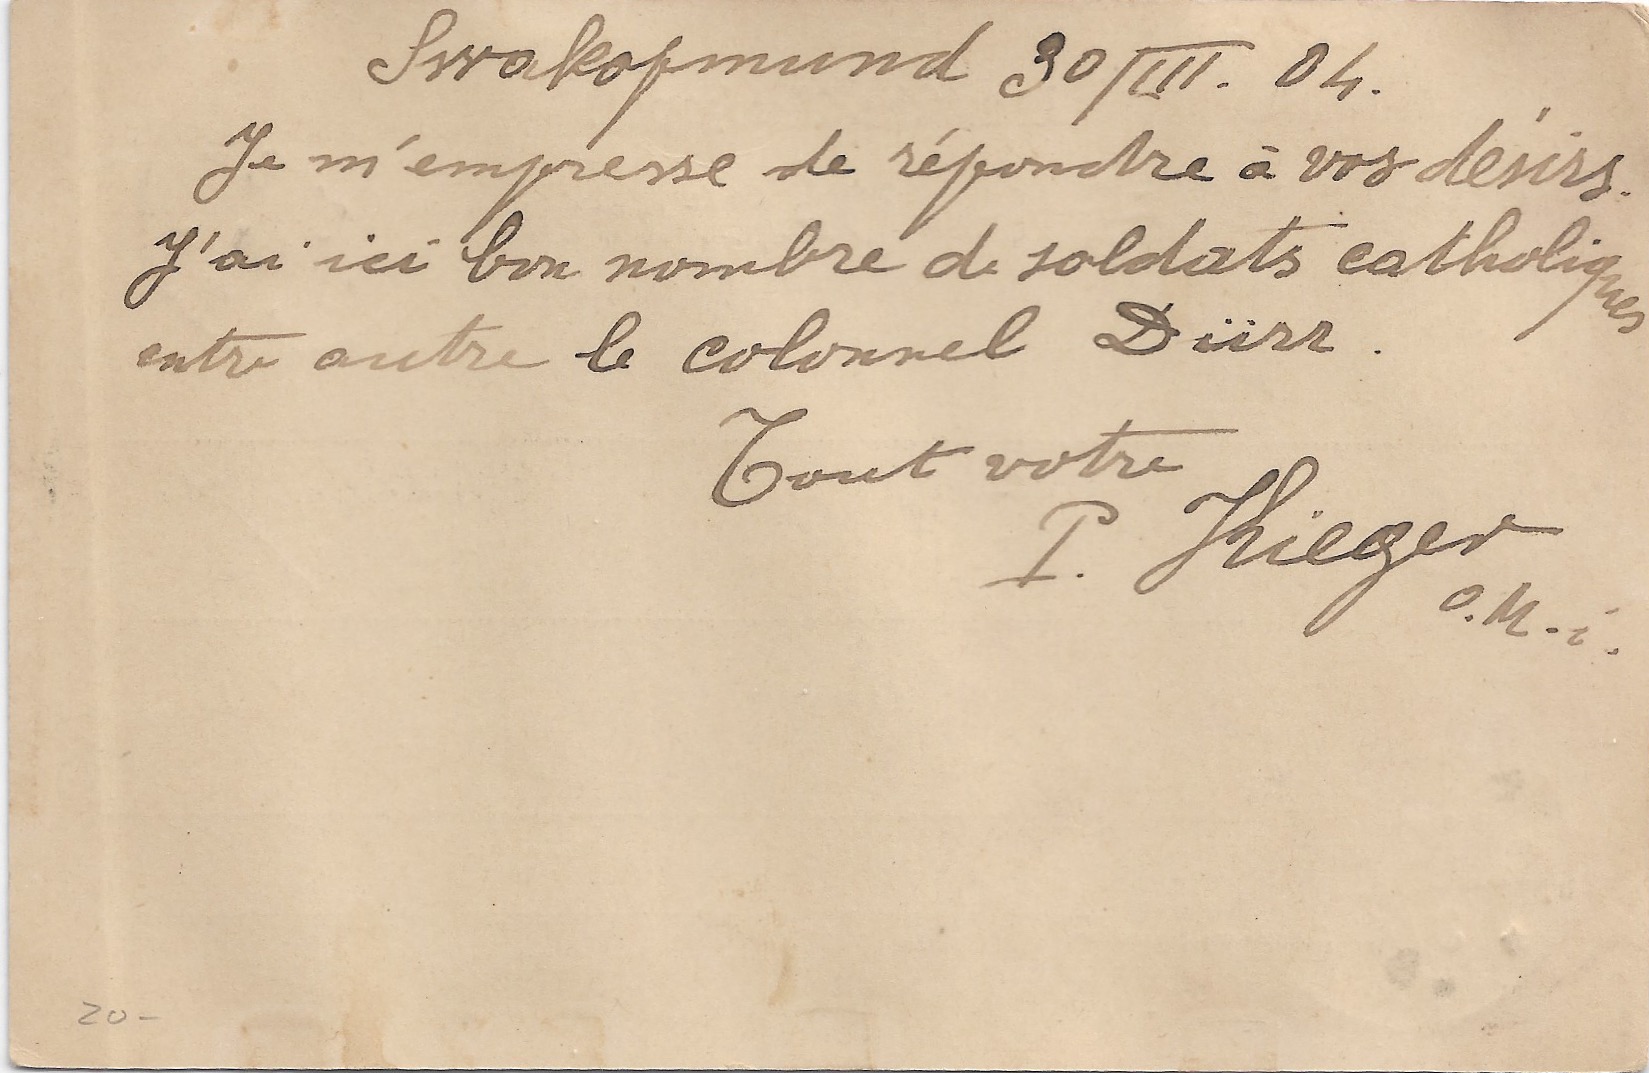 Swakopmund 30/III. 04.
Je m'empresse de répondre à vos désirs.
J'ai ici bon nombre de soldats catholiques
entre autre le colonnel Dürr.
Tout votre
P. Kieger
O.M.i.
20-